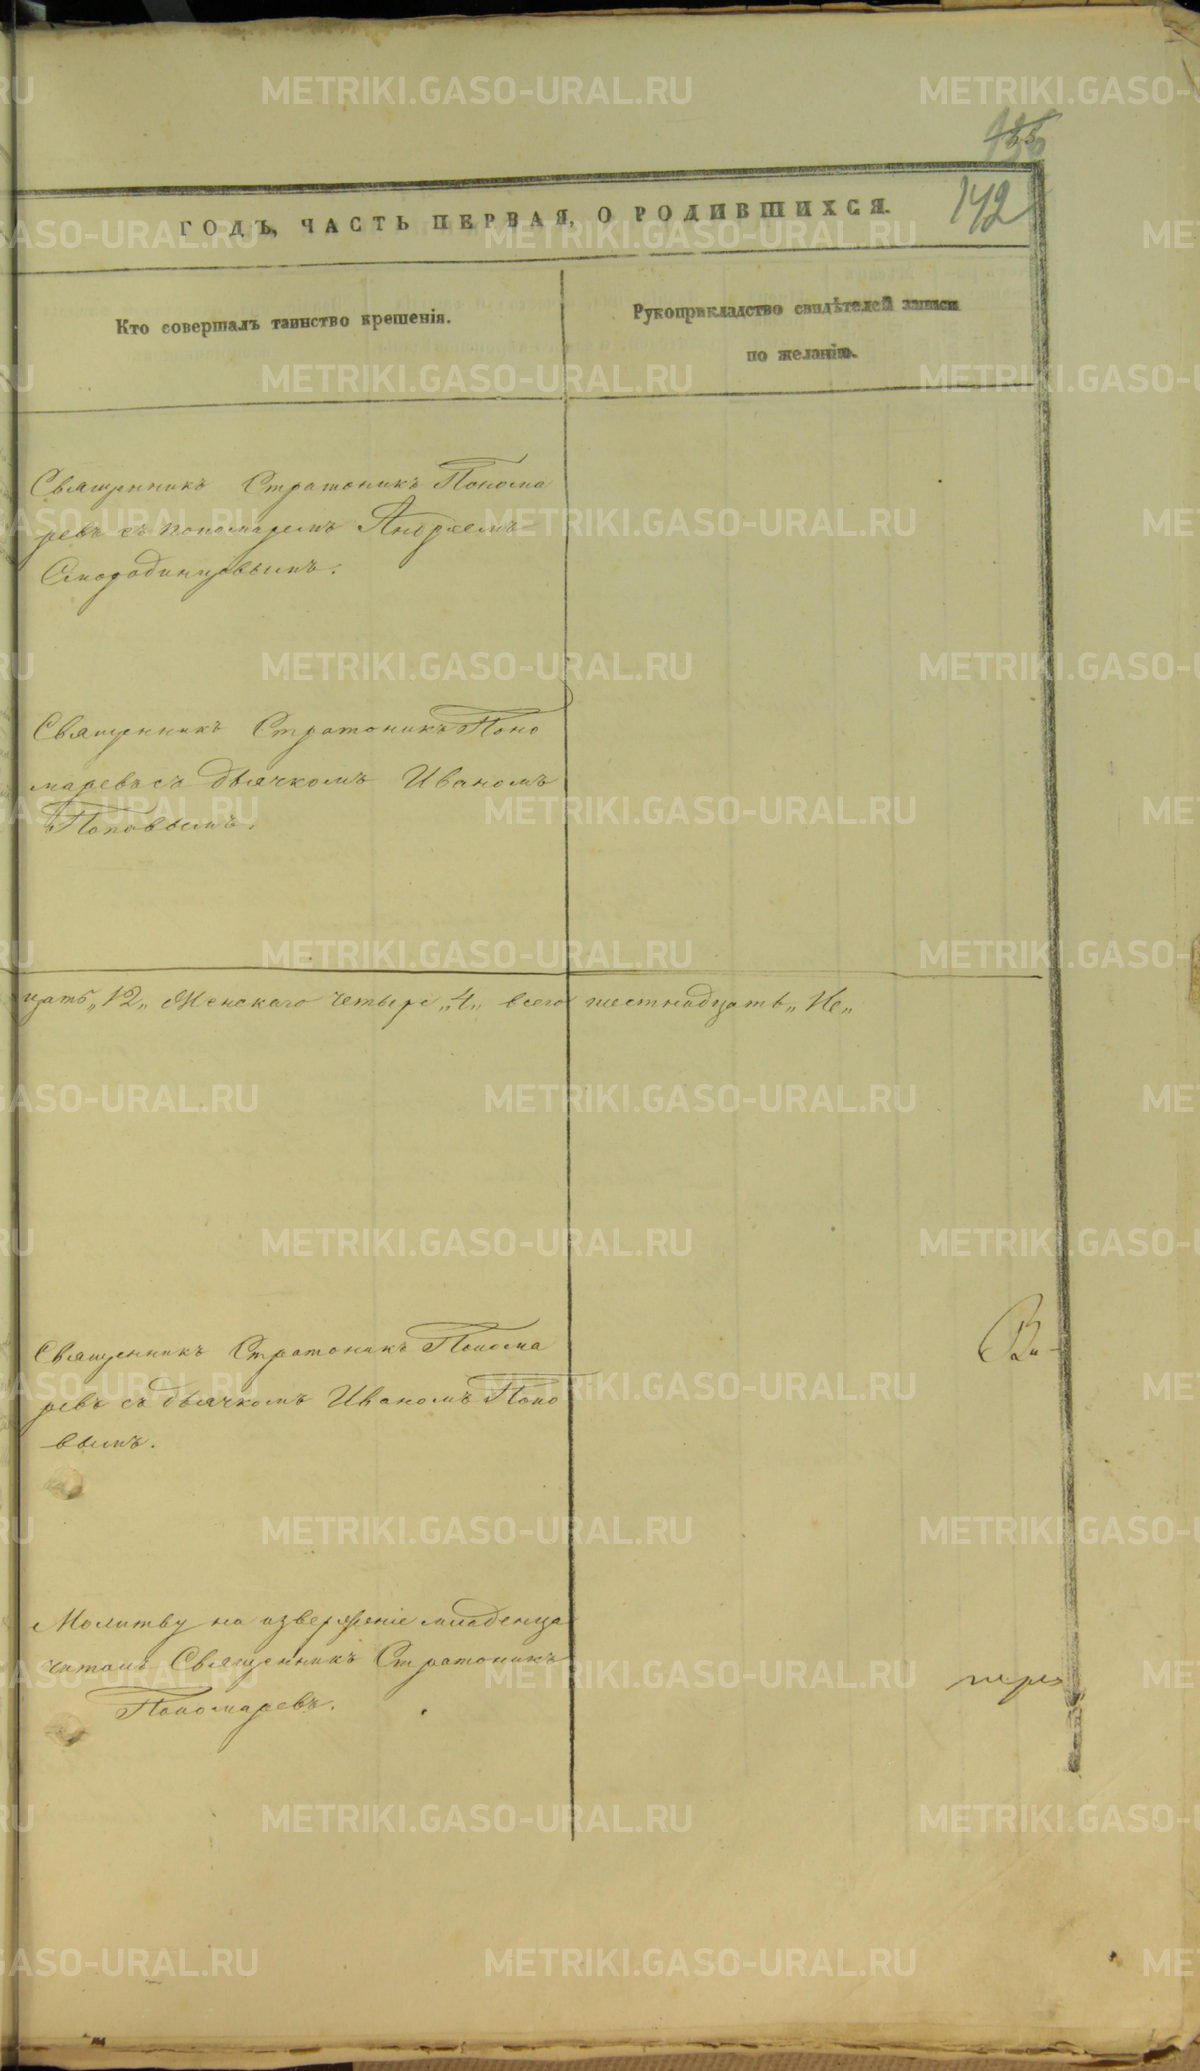 142
ГОДЪ, ЧАСТЬ ПЕРВАЯ, О РОДИВШИХСЯ.
Кто совершалъ таинство крещенія.
Рукоприкладство свидѣтелей записи
по желанію.
Священникъ Стратоникъ Понома
ревъ съ пономаремъ Андреемъ
Смородинцовымъ.
Священникъ Стратоникъ Поно
маревъ съ дьячкомъ Иваномъ
Поповымъ.
цать „12„ Женскаго четыре „4„ всего шестнадцать „16„
Священникъ Стратоникъ Понома
ревъ съ дьячкомъ Иваномъ Попо
вымъ.
Молитву на изверженіе младенца
читалъ Священникъ Стратоникъ
Пономаревъ.
METRIKI.GASO-URAL.RU